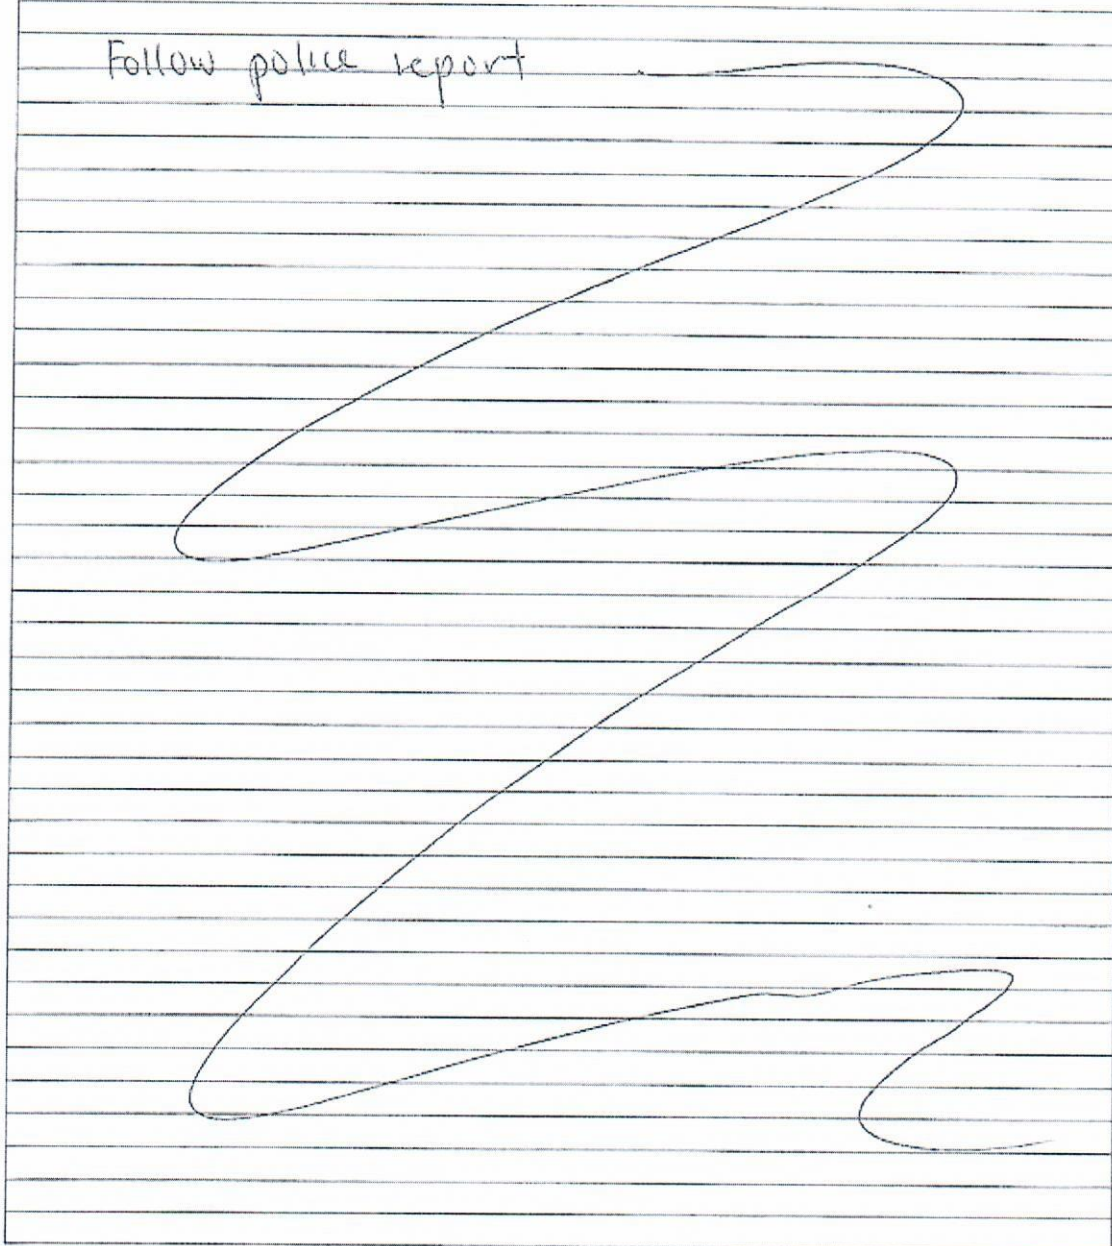 Follow police report